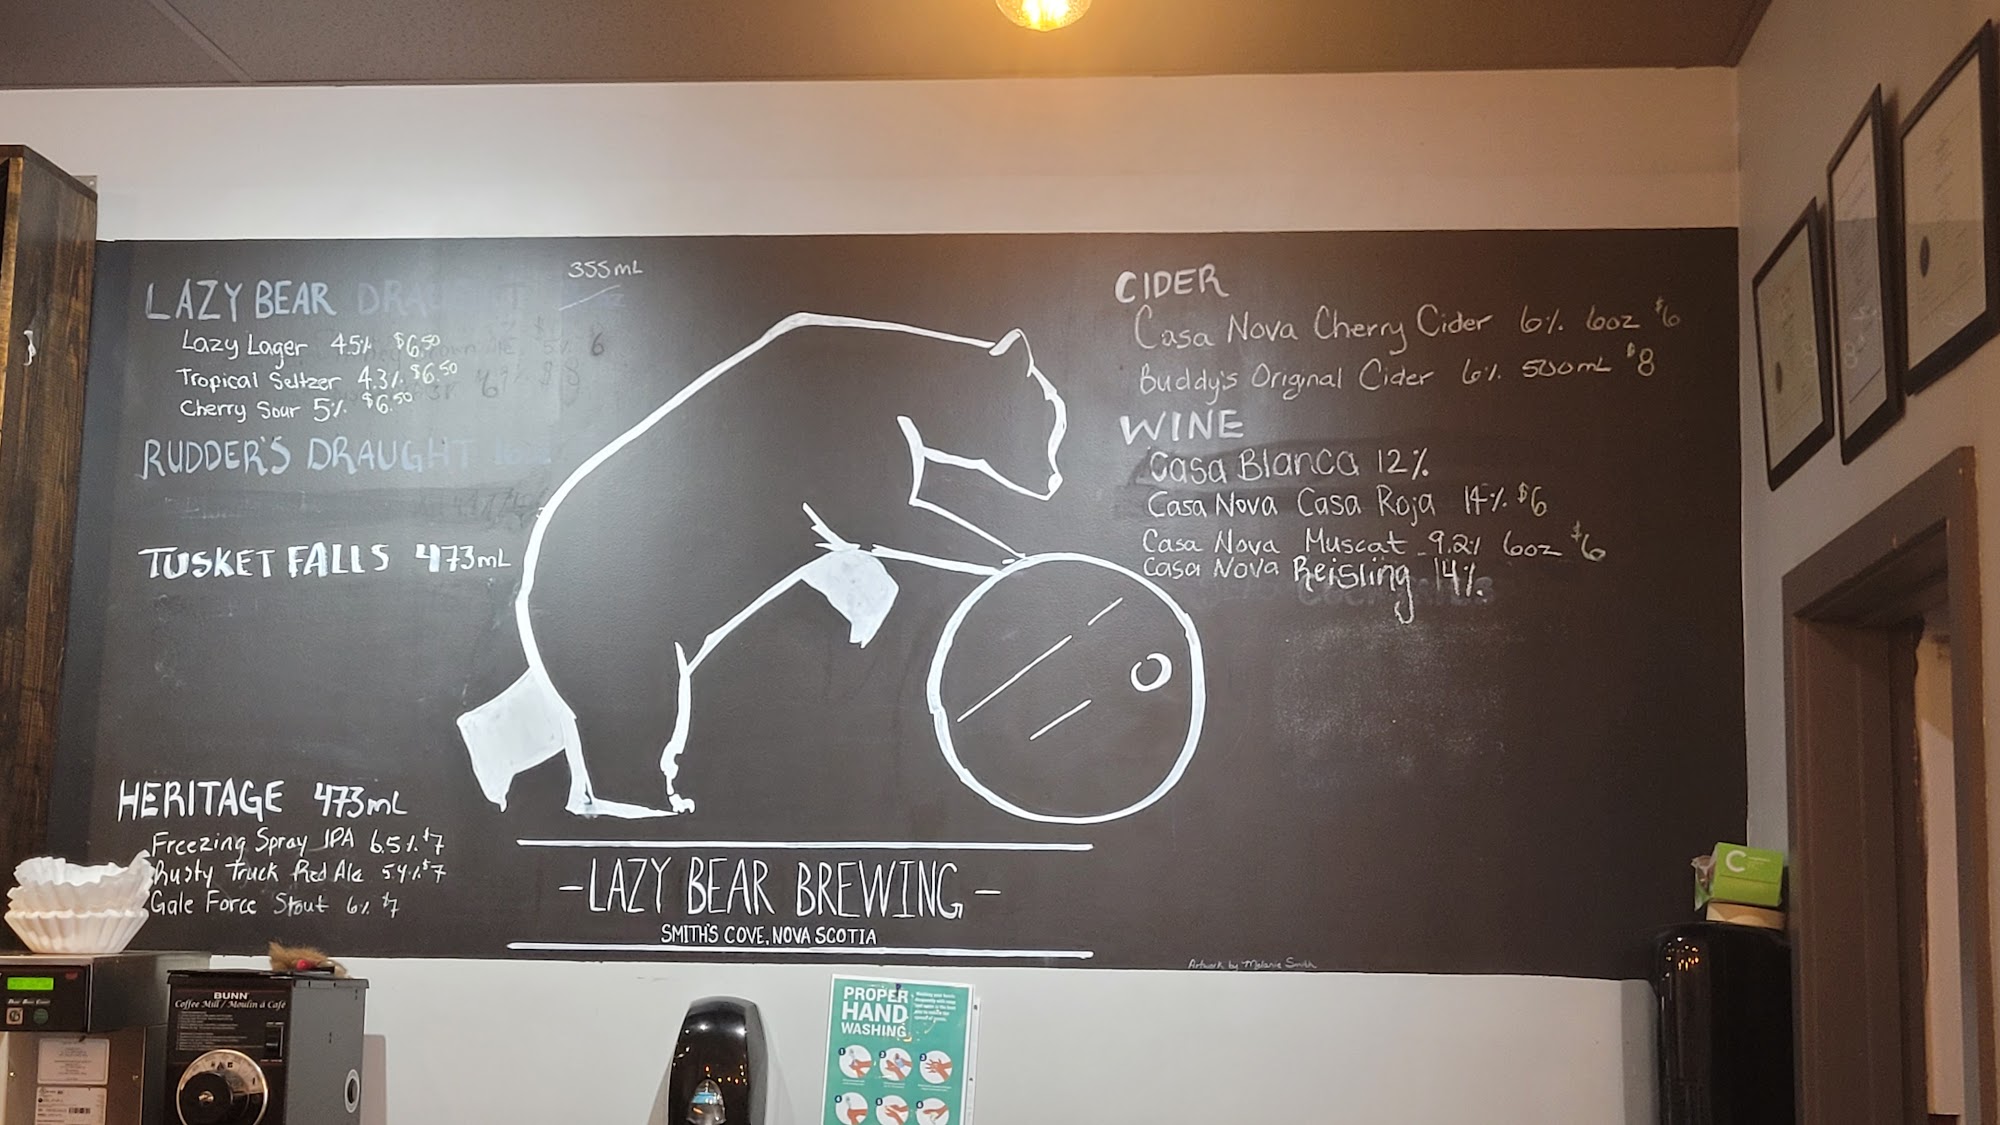 355mL
LAZY BEAR DRAUGHT
Lazy Lager 4.5% $6.50
Tropical Seltzer 4.3% $6.50
Cherry Sour 5% $6.50
RUDDER'S DRAUGHT
TUSKET FALLS 473mL
HERITAGE 473mL
Freezing Spray IPA 6.5% $7
Rusty Truck Red Ale 5.4% $7
Gale Force Stout 6% $7
CIDER
Casa Nova Cherry Cider 6% 6oz $6
Buddy's Original Cider 6% 500mL $8
WINE
Casa Blanca 12%
Casa Nova Casa Roja 14% $6
Casa Nova Muscat 9.2% 6oz $6
Casa Nova Reisling 14%
-LAZY BEAR BREWING-
SMITH'S COVE, NOVA SCOTIA
Artwork by Melanie Smith
BUNN
Coffee Mill / Moulin à Café
PROPER
HAND
WASHING
1
2
3
4
5
6